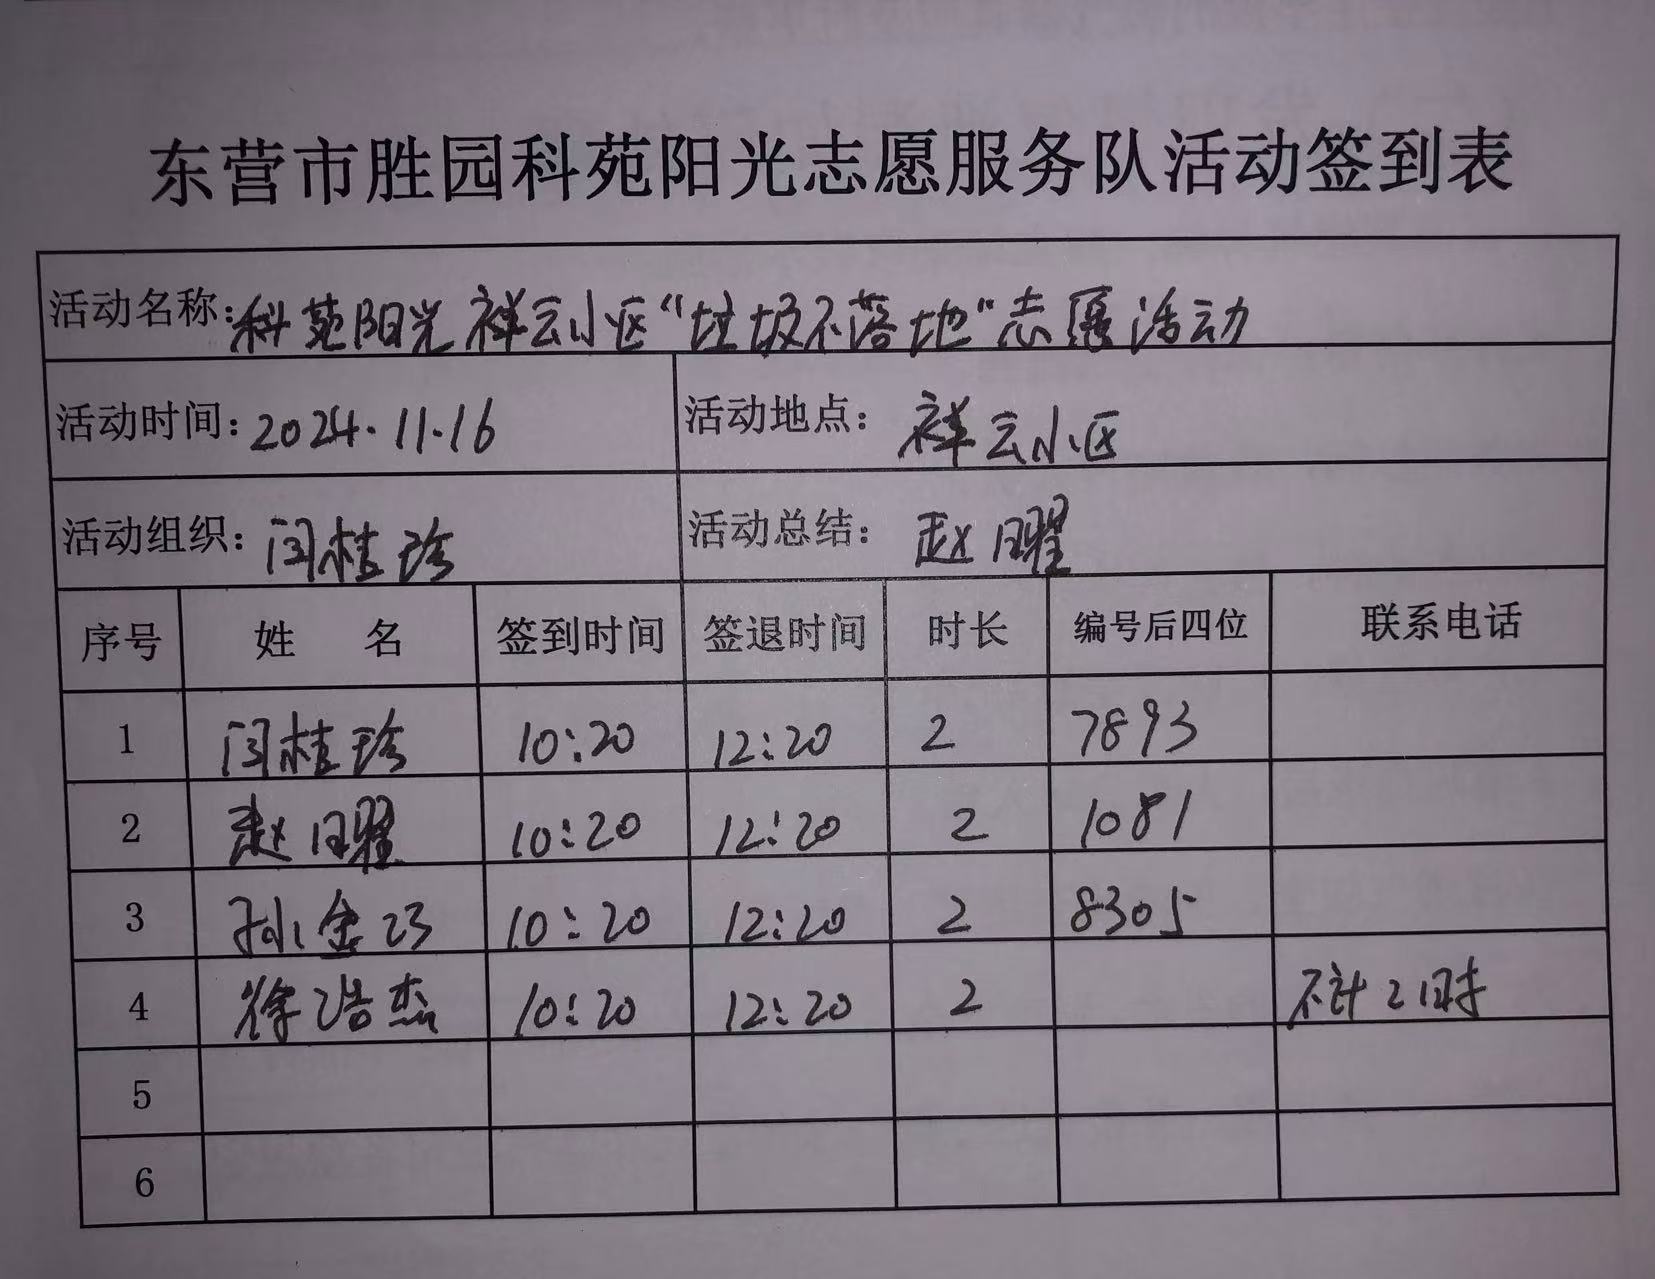 东营市胜园科苑阳光志愿服务队活动签到表
活动名称:科苑阳光祥云小区“垃圾不落地”志愿活动
活动时间:2024.11.16 活动地点:祥云小区
活动组织:闫桂珍 活动总结:赵日曜
序号 姓 名 签到时间 签退时间 时长 编号后四位 联系电话
1 闫桂珍 10:20 12:20 2 7893
2 赵日曜 10:20 12:20 2 1081
3 孙金巧 10:20 12:20 2 8305
4 徐浩杰 10:20 12:20 2 不计2时
5
6